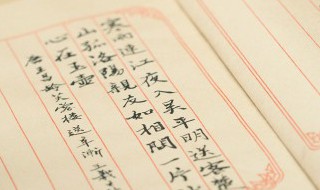 寒雨連江夜入吴平明送客楚
山孤洛陽親友如相問一片
心在玉壺
唐王昌齡芙蓉樓送辛漸